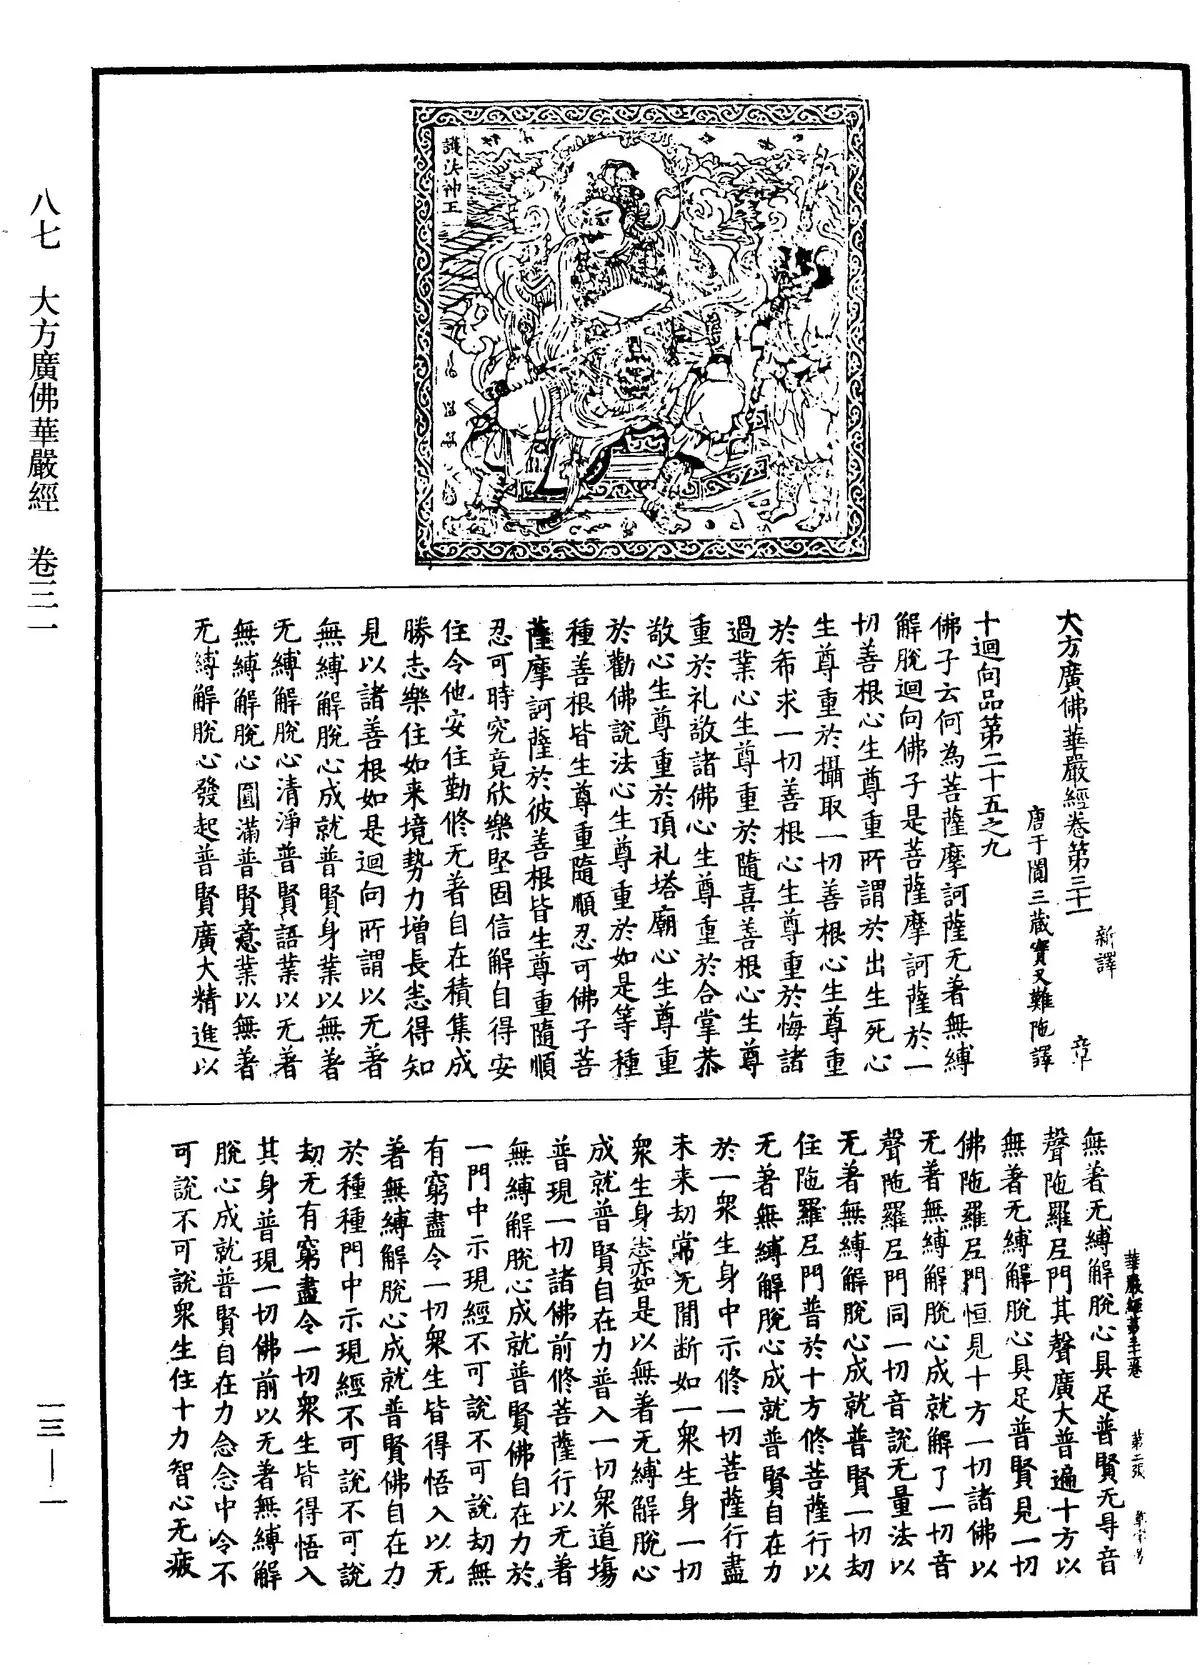 八七 大方廣佛華嚴經 卷三一
一三—一
護法神王
大方廣佛華嚴經卷第三十一 新譯 章
唐于闐三藏實叉難陁譯
十迴向品第二十五之九
佛子云何為菩薩摩訶薩无著無縛
解脫迴向佛子是菩薩摩訶薩於一
切善根心生尊重所謂於出生死心
生尊重於攝取一切善根心生尊重
於希求一切善根心生尊重於悔諸
過業心生尊重於隨喜善根心生尊
重於礼敬諸佛心生尊重於合掌恭
敬心生尊重於頂礼塔廟心生尊重
於勸佛說法心生尊重於如是等種
種善根皆生尊重隨順忍可佛子菩
薩摩訶薩於彼善根皆生尊重隨順
忍可時究竟欣樂堅固信解自得安
住令他安住勤修无著自在積集成
勝志樂住如来境勢力增長悉得知
見以諸善根如是迴向所謂以无著
無縛解脫心成就普賢身業以無著
无縛解脫心清淨普賢語業以无著
無縛解脫心圓滿普賢意業以無著
无縛解脫心發起普賢廣大精進以
華嚴經第三十一卷 第二張
無著无縛解脫心具足普賢无㝵音
聲陁羅尼門其聲廣大普遍十方以
無著无縛解脫心具足普賢見一切
佛陁羅尼門恒見十方一切諸佛以
无著無縛解脫心成就解了一切音
聲陁羅尼門同一切音說无量法以
无著無縛解脫心成就普賢一切劫
住陁羅尼門普於十方修菩薩行以
无著無縛解脫心成就普賢自在力
於一衆生身中示修一切菩薩行盡
未来劫常无閒断如一衆生身一切
衆生身悉如是以無著无縛解脫心
成就普賢自在力普入一切衆道場
普現一切諸佛前修菩薩行以无著
無縛解脫心成就普賢佛自在力於
一門中示現經不可說不可說劫無
有窮盡令一切衆生皆得悟入以无
著無縛解脫心成就普賢佛自在力
於種種門中示現經不可說不可說
劫无有窮盡令一切衆生皆得悟入
其身普現一切佛前以无著無縛解
脫心成就普賢自在力念念中令不
可說不可說衆生住十力智心无疲